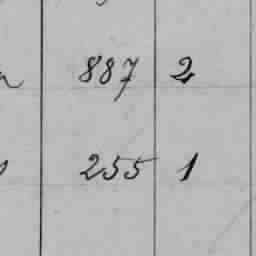 887 2
255 1